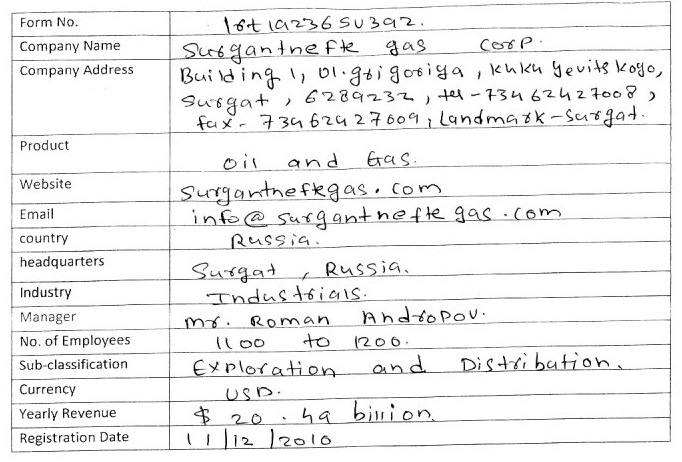 Form No. 1rt1a236SU392.
Company Name Surgantnefte gas Corp.
Company Address Building 1, Ul. grigoriya, Kuku Yevitskogo,
Surgat, 6289232, tel - 73462427008,
fax - 73462427009, Landmark - Surgat.
Product Oil and Gas.
Website surgantneftegas.com
Email info@surgantneftegas.com
country Russia.
headquarters Surgat, Russia.
Industry Industrials.
Manager Mr. Roman Andropov.
No. of Employees 1100 to 1200.
Sub-classification Exploration and Distribution.
Currency USD.
Yearly Revenue $ 20.49 billion.
Registration Date 11/12/2010